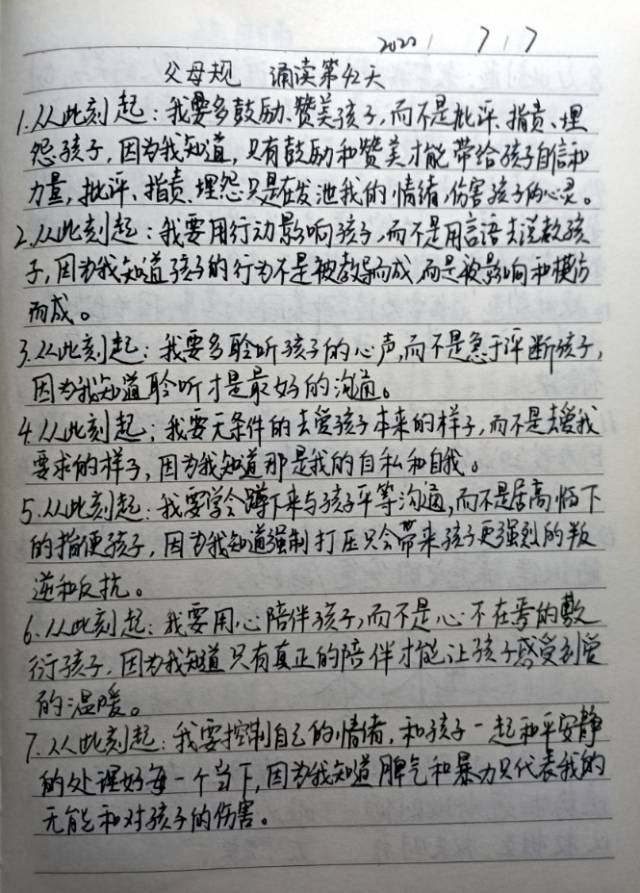 2022 / 7/7
父母规 诵读第42天
1.从此刻起：我要多鼓励、赞美孩子，而不是批评、指责、埋
怨孩子，因为我知道，只有鼓励和赞美才能带给孩子自信和
力量，批评、指责、埋怨只是在发泄我的情绪，伤害孩子的心灵。
2.从此刻起：我要用行动影响孩子，而不是用言语去说教孩
子，因为我知道孩子的行为不是被教导而成，而是被影响和模仿
而成。
3.从此刻起：我要多聆听孩子的心声，而不是急于评断孩子，
因为我知道聆听才是最好的沟通。
4.从此刻起；我要无条件的去爱孩子本来的样子，而不是去爱我
要求的样子，因为我知道那是我的自私和自我。
5.从此刻起：我要学会蹲下来与孩子平等沟通，而不是居高临下
的指使孩子，因为我知道强制打压只会带来孩子更强烈的叛
逆和反抗。
6.从此刻起：我要用心陪伴孩子，而不是心不在焉的敷
衍孩子，因为我知道只有真正的陪伴才能让孩子感受到爱
的温暖。
7.从此刻起：我要控制自己的情绪，和孩子一起和平安静
的处理好每一个当下，因为我知道脾气和暴力只代表我的
无能和对孩子的伤害。